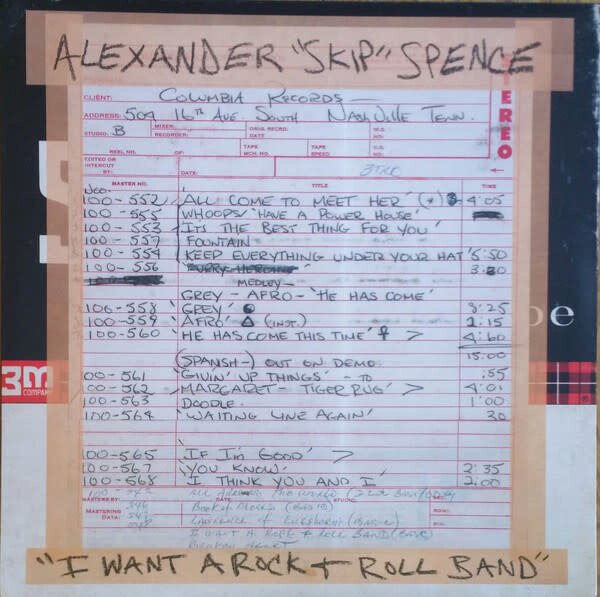 ALEXANDER "SKIP" SPENCE
CLIENT: COLUMBIA RECORDS —
ADDRESS: 504 16TH AVE. SOUTH NASHVILLE TENN.
STUDIO: B MIXER: DAHG. RECRD. W.O. NO.
RECORDER: DATE: C.O. NO.
REEL NO. OF: TAPE MCH. NO. TAPE SPEED
STEREO
EDITED OR INTERCUT BY DATE: 3TRK
MASTER NO. TITLE TIME
NCO-
100-552 'ALL COME TO MEET HER' (*) 4:05
100-555 'WHOOPS' HAVE A POWER HOUSE'
100-553 'ITS THE BEST THING FOR YOU'
100-557 FOUNTAIN
100-554 'KEEP EVERYTHING UNDER YOUR HAT' 5:50
100-556
MEDLEY-
GREY - AFRO - 'HE HAS COME'
100-558 'GREY' 8:25
100-559 'AFRO' (INST.) 2:15
100-560 'HE HAS COME THIS TIME' > 4:60
15:00
(SPANISH-) OUT ON DEMO
100-561 'GIVIN' UP THINGS' - TO :55
100-562 'MARGARET - TIGER RUG' > 4:01
100-563 DOODLE 1:00
100-564 'WAITING LINE AGAIN' 30
100-565 'IF I'M GOOD' >
100-567 'YOU KNOW' 2:35
100-568 'I THINK YOU AND I' 2:00
MASTERED BY: DATE:
MASTERING DATA:
546 BOOK OF MOSES (BASIC)
LAWRENCE OF EUPHORIA (BASIC)
I WANT A ROPE & ROLL BAND (BASIC)
BROKEN HEART
3M
COMPANY
be
"I WANT A ROCK + ROLL BAND"